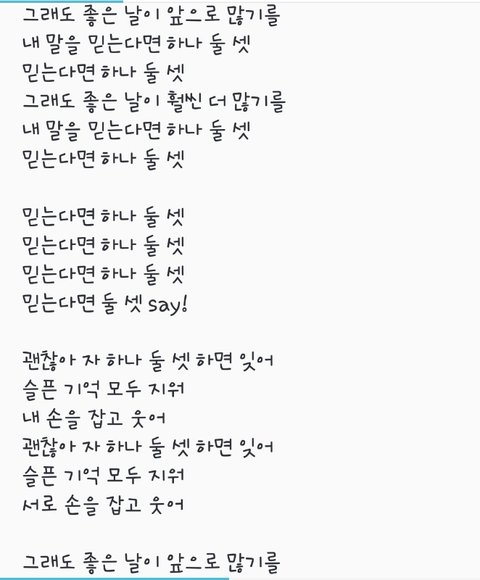 그래도 좋은 날이 앞으로 많기를
내 말을 믿는다면 하나 둘 셋
믿는다면 하나 둘 셋
그래도 좋은 날이 훨씬 더 많기를
내 말을 믿는다면 하나 둘 셋
믿는다면 하나 둘 셋
믿는다면 하나 둘 셋
믿는다면 하나 둘 셋
믿는다면 하나 둘 셋
믿는다면 둘 셋 say!
괜찮아 자 하나 둘 셋 하면 잊어
슬픈 기억 모두 지워
내 손을 잡고 웃어
괜찮아 자 하나 둘 셋 하면 잊어
슬픈 기억 모두 지워
서로 손을 잡고 웃어
그래도 좋은 날이 앞으로 많기를